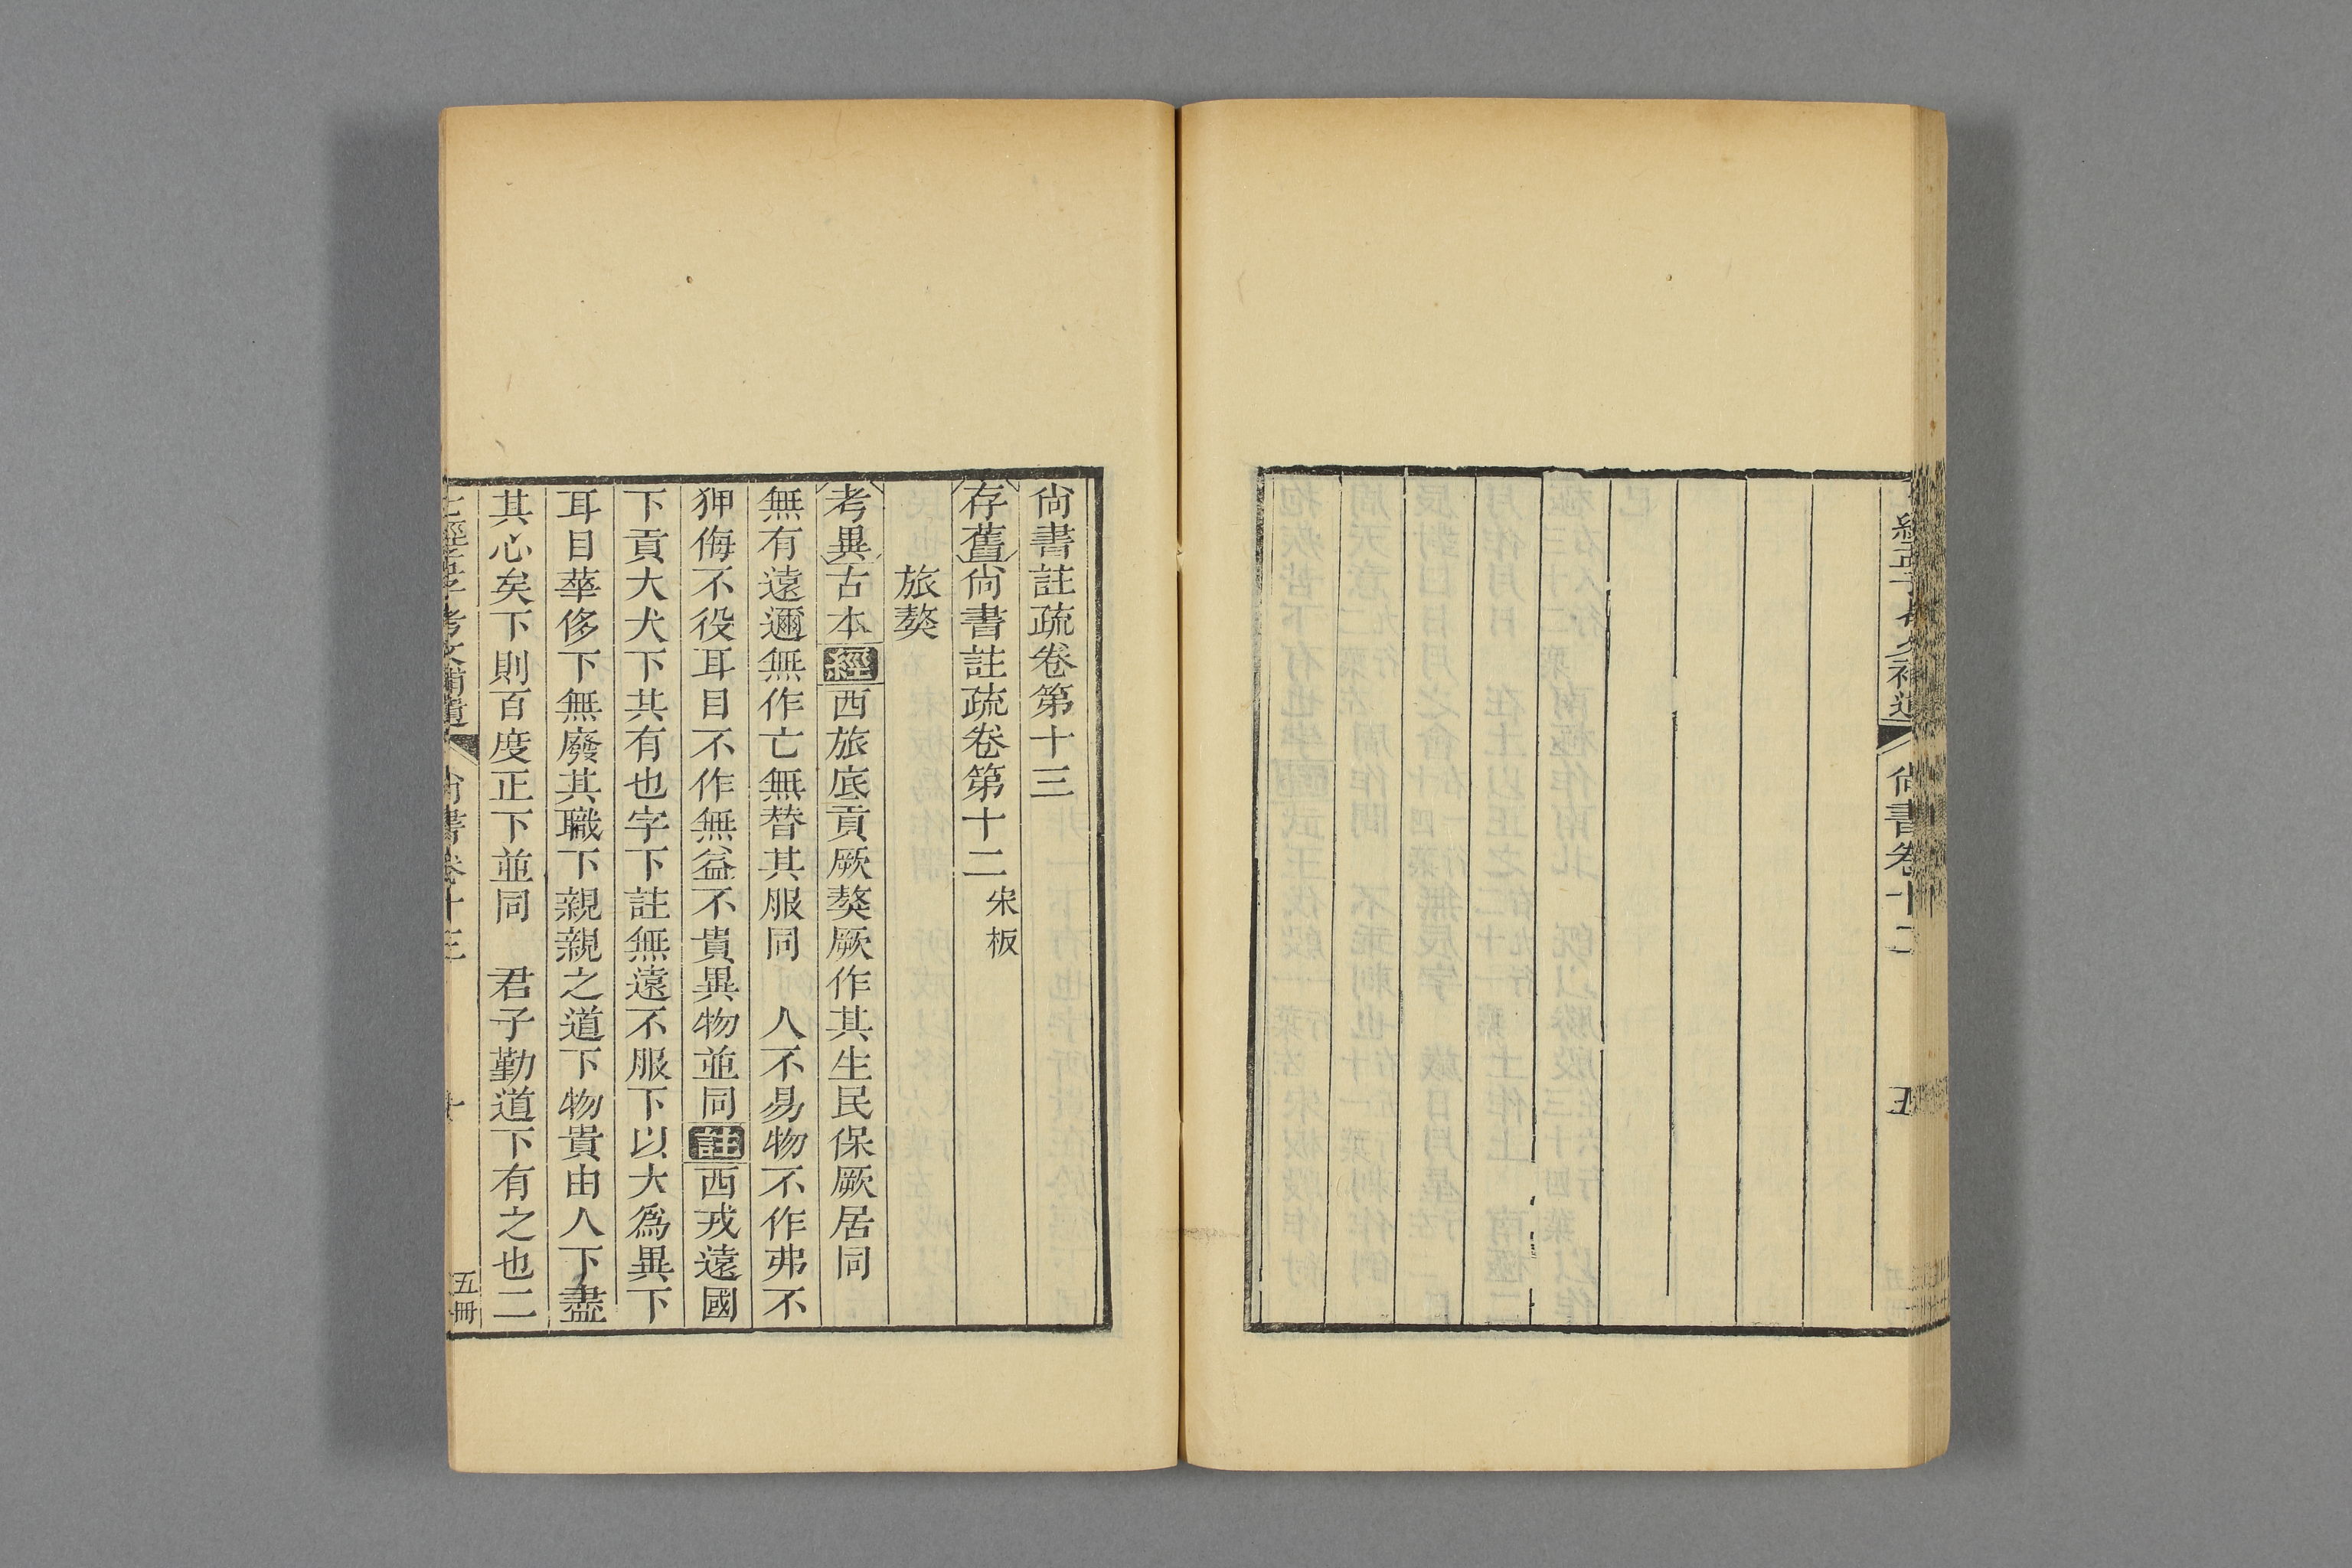 尚書卷十二
五
尚書註疏卷第十三
存舊尚書註疏卷第十二宋板
旅獒
考異古本經西旅底貢厥獒厥作其生民保厥居同
無有遠邇無作亡無替其服同　人不易物不作弗不
狎侮不役耳目不作無益不貴異物並同註西戎遠國
下貢大犬下共有也字下註無遠不服下以大為異下
耳目華侈下無廢其職下親親之道下物貴由人下盡
其心矣下則百度正下並同　君子勤道下有之也二
七經孟子考文補遺　尚書卷十三　五冊